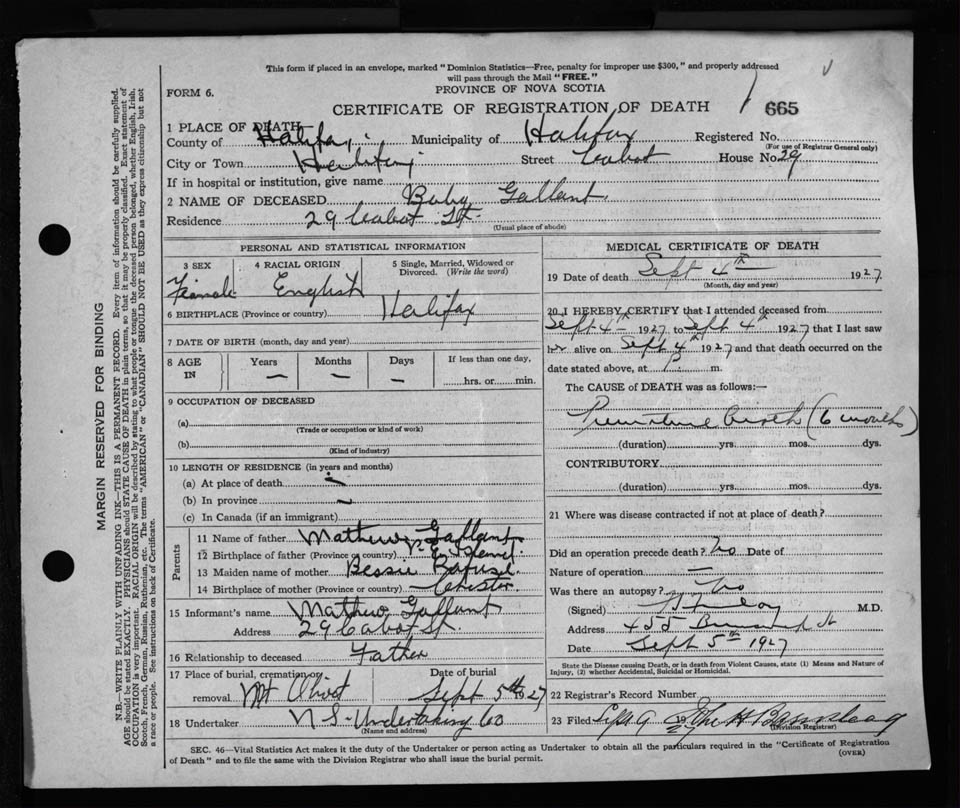 This form if placed in an envelope, marked "Dominion Statistics—Free, penalty for improper use $300," and properly addressed
will pass through the Mail "FREE."
FORM 6.
PROVINCE OF NOVA SCOTIA
CERTIFICATE OF REGISTRATION OF DEATH
665
1 PLACE OF DEATH
County of Halifax Municipality of Halifax Registered No.
(For use of Registrar General only)
City or Town Halifax Street Cabot House No. 29
If in hospital or institution, give name
2 NAME OF DECEASED Baby Gallant
Residence 29 Cabot St.
(Usual place of abode)
PERSONAL AND STATISTICAL INFORMATION
3 SEX 4 RACIAL ORIGIN 5 Single, Married, Widowed or
Divorced. (Write the word)
Female English
6 BIRTHPLACE (Province or country) Halifax
7 DATE OF BIRTH (month, day and year)
8 AGE IN Years Months Days If less than one day,
— — — hrs. or min.
9 OCCUPATION OF DECEASED
(a)
(Trade or occupation or kind of work)
(b)
(Kind of industry)
10 LENGTH OF RESIDENCE (in years and months)
(a) At place of death
(b) In province
(c) In Canada (if an immigrant)
Parents
11 Name of father Mathew Gallant
12 Birthplace of father (Province or country) P. E. Island
13 Maiden name of mother Bessie
14 Birthplace of mother (Province or country) Chester
15 Informant's name Mathew Gallant
Address 29 Cabot St.
16 Relationship to deceased Father
17 Place of burial, cremation or Date of burial
removal Mt Olivet Sept 5th 1927
18 Undertaker N S Undertaking Co
(Name and address)
MEDICAL CERTIFICATE OF DEATH
19 Date of death Sept 4th 1927
(Month, day and year)
20 I HEREBY CERTIFY that I attended deceased from
Sept 4th 1927 to Sept 4th 1927 that I last saw
her alive on Sept 4th 1927 and that death occurred on the
date stated above, at m.
The CAUSE of DEATH was as follows:—
Premature birth (6 months)
(duration) yrs. mos. dys.
CONTRIBUTORY
(duration) yrs. mos. dys.
21 Where was disease contracted if not at place of death?
Did an operation precede death? No Date of
Nature of operation —
Was there an autopsy? No
(Signed) M.D.
Address 455 St
Date Sept 5th 1927
State the Disease causing Death, or in death from Violent Causes, state (1) Means and Nature of
Injury, (2) whether Accidental, Suicidal or Homicidal.
22 Registrar's Record Number
23 Filed Sept 9 1927
(Division Registrar)
SEC. 46—Vital Statistics Act makes it the duty of the Undertaker or person acting as Undertaker to obtain all the particulars required in the "Certificate of Registration
of Death" and to file the same with the Division Registrar who shall issue the burial permit.
(OVER)
MARGIN RESERVED FOR BINDING
N.B.—WRITE PLAINLY WITH UNFADING INK—THIS IS A PERMANENT RECORD. Every item of information should be carefully supplied.
AGE should be stated EXACTLY. PHYSICIANS should STATE CAUSE OF DEATH in plain terms, so that it may be properly classified. Exact statement of
OCCUPATION is very important. RACIAL ORIGIN will be described by stating to what people or tongue the deceased person belonged, whether English, Irish,
Scotch, French, German, Russian, Ruthenian, etc. The terms "AMERICAN" or "CANADIAN" SHOULD NOT BE USED as they express citizenship but not
a race or people. See instructions on back of Certificate.